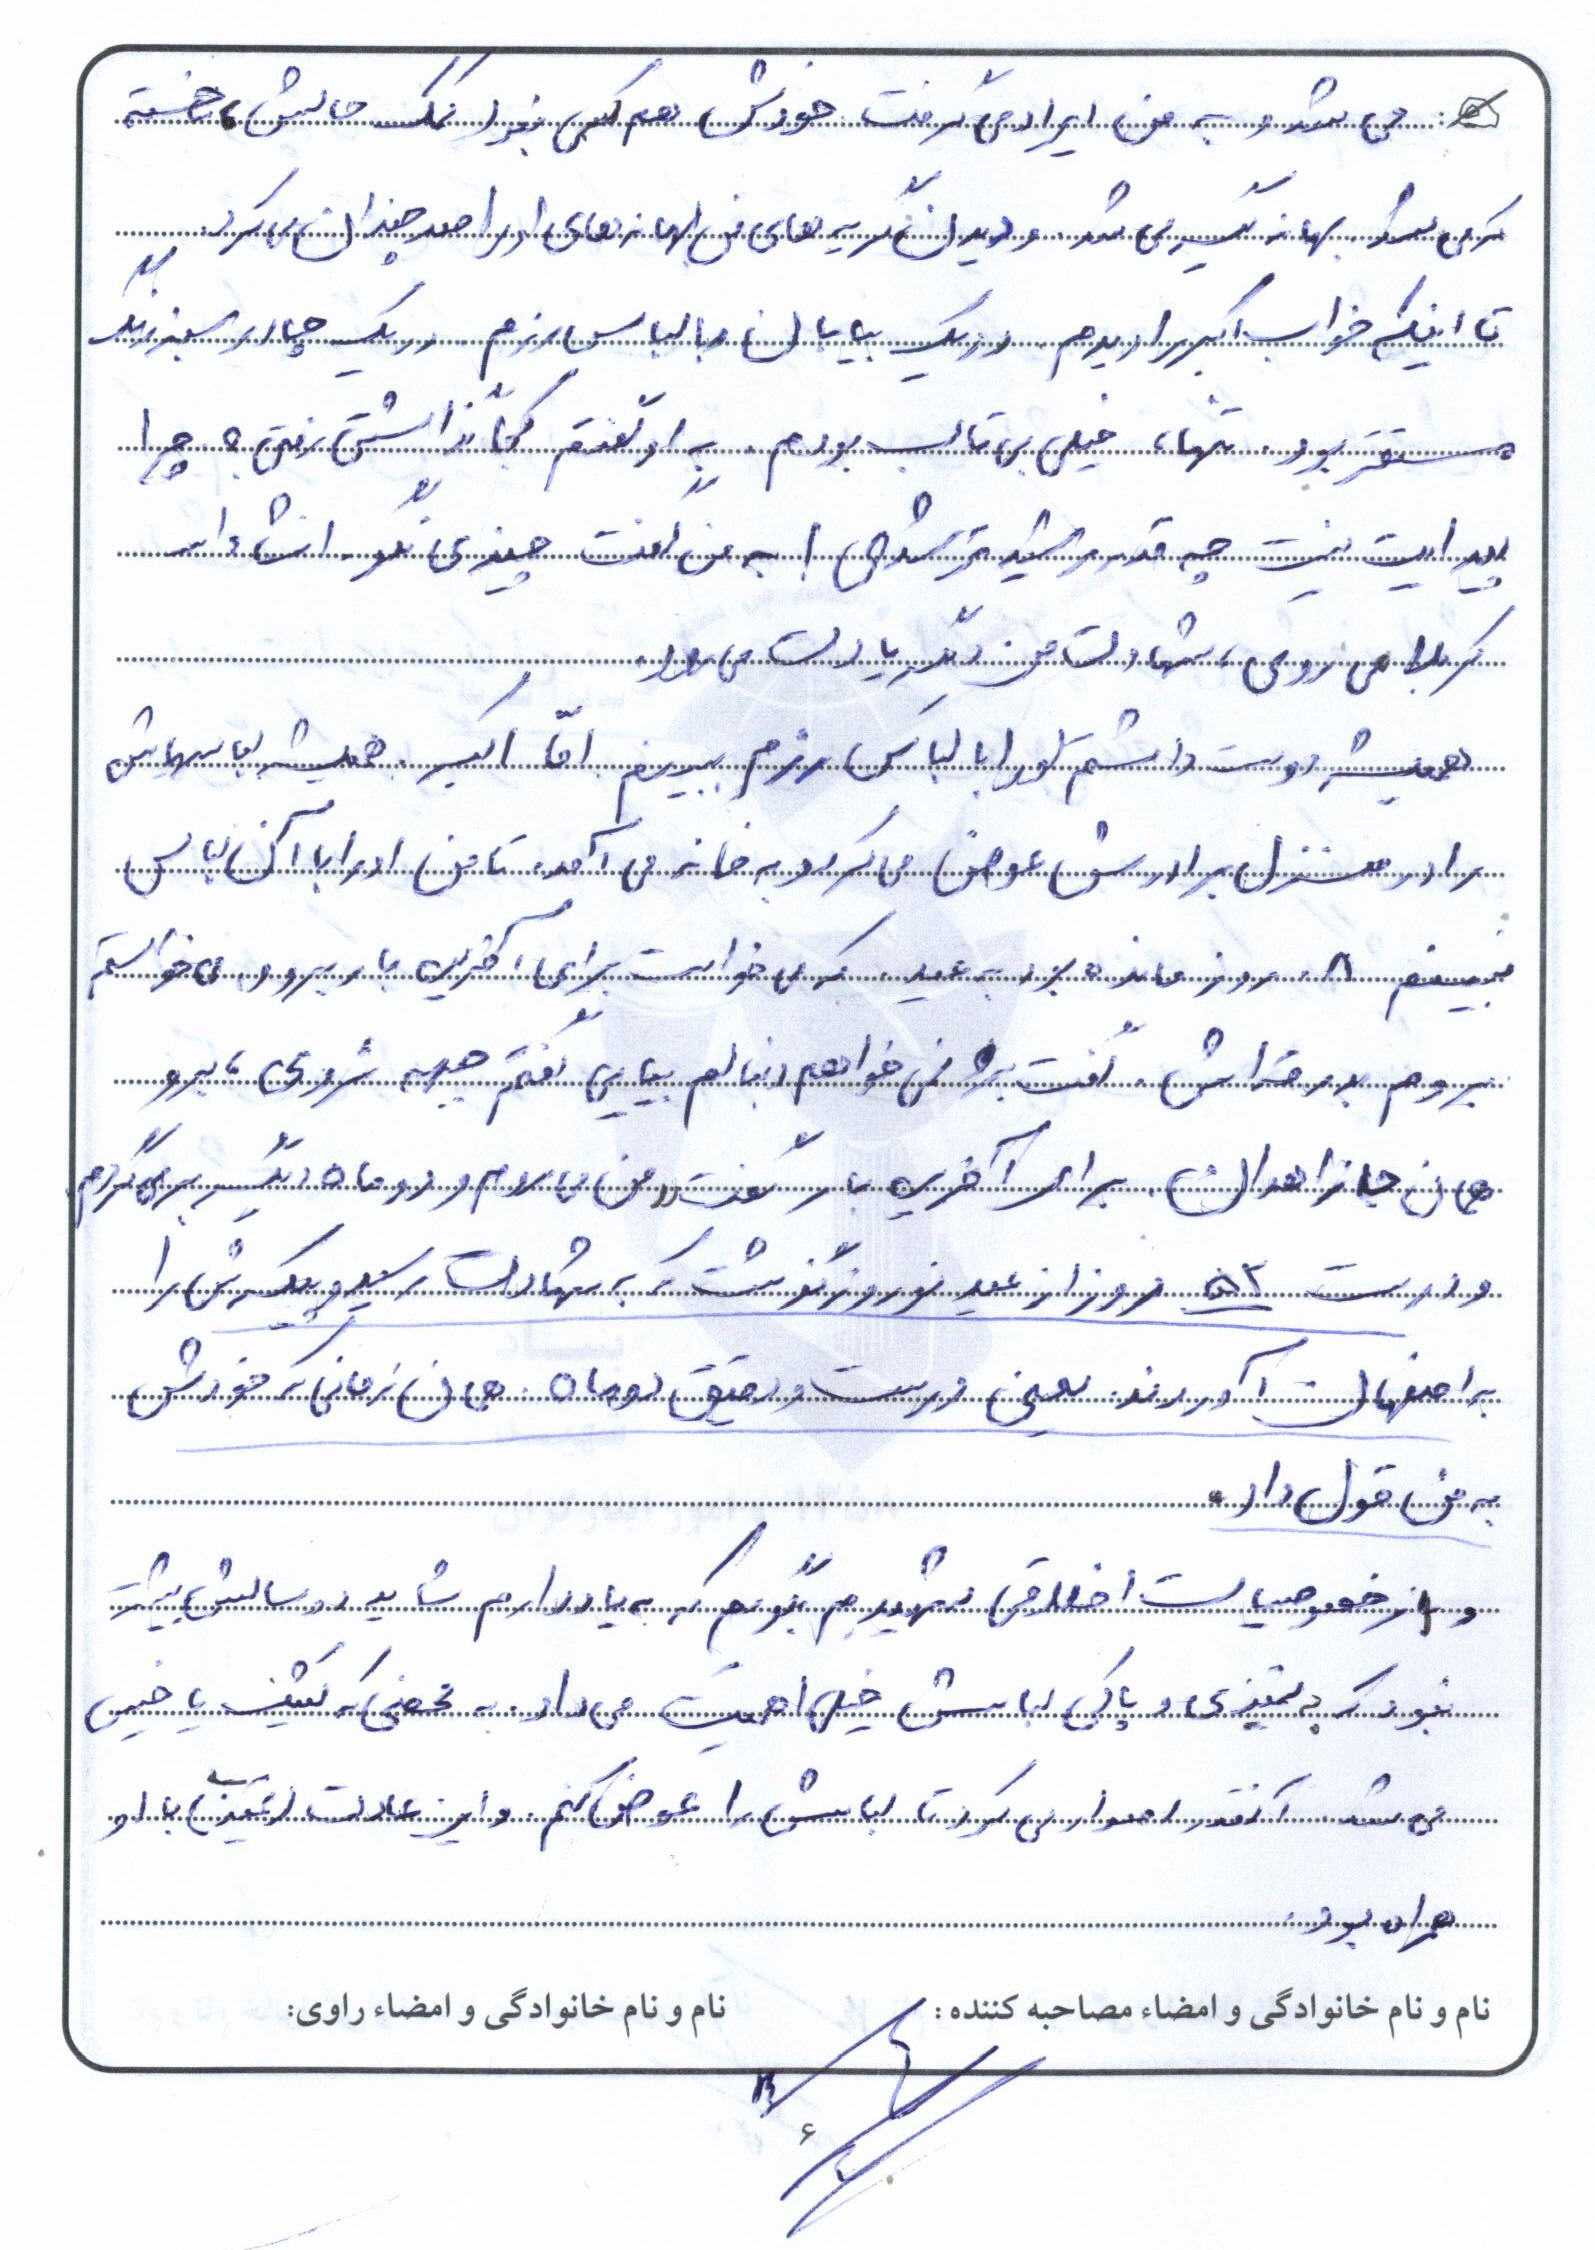 می شد و به من ایراد می گرفت. خودش هم کسی نبود کمک حالش، خسته
که می شد بهانه گیر می شد. و دیدن گریه های من بهانه های او را صد چندان می کرد.
تا اینکه خواب اکبر را دیدم. در یک بیابان با لباس رزم. در یک چادر سبز رنگ
مستقر بود. تنها، خیلی بی تاب بودم. به او گفتم کجا گذاشتی رفتی؟ چرا
پیدایت نیست چه قدر رشیدتر شدی! به من گفت چیزی نگو. انشاءالله
کربلا می روی، شهادت من دیگر یادت می رود.
همیشه دوست داشتم او را با لباس رزم ببینم. امّا اکبر. همیشه لباسهایش
را در منزل برادرش عوض می کرد و به خانه می آمد. تا من او را با آن لباس
نبینم. ۸ روز مانده بود به عید. که می خواست برای آخرین بار برود. می خواستم
بروم بدرقه اش. گفت نمی خواهم دنبالم بیایی گفتم جبهه نروی، برو
همان جا زاهدان. برای آخرین بار گفت «من می روم و دو ماه دیگر برمی گردم
و درست ۵۲ روز از عید نوروز گذشت که به شهادت رسید و پیکرش را
به اصفهان آوردند. یعنی درست و دقیق دو ماه. همان زمانی که خودش
به من قول داد.
و از خصوصیات اخلاقی شهیدم بگویم که به یاد دارم شاید دو سالش بیشتر
نبود که به تمیزی و پاکی لباسش خیلی اهمیّت می داد. به محضی که کثیف یا خیس
می شد. آنقدر اصرار می کرد تا لباسش را عوض کنم. و این عادت (تمیزی) با او
همراه بود.
نام و نام خانوادگی و امضاء مصاحبه کننده: نام و نام خانوادگی و امضاء راوی:
۶